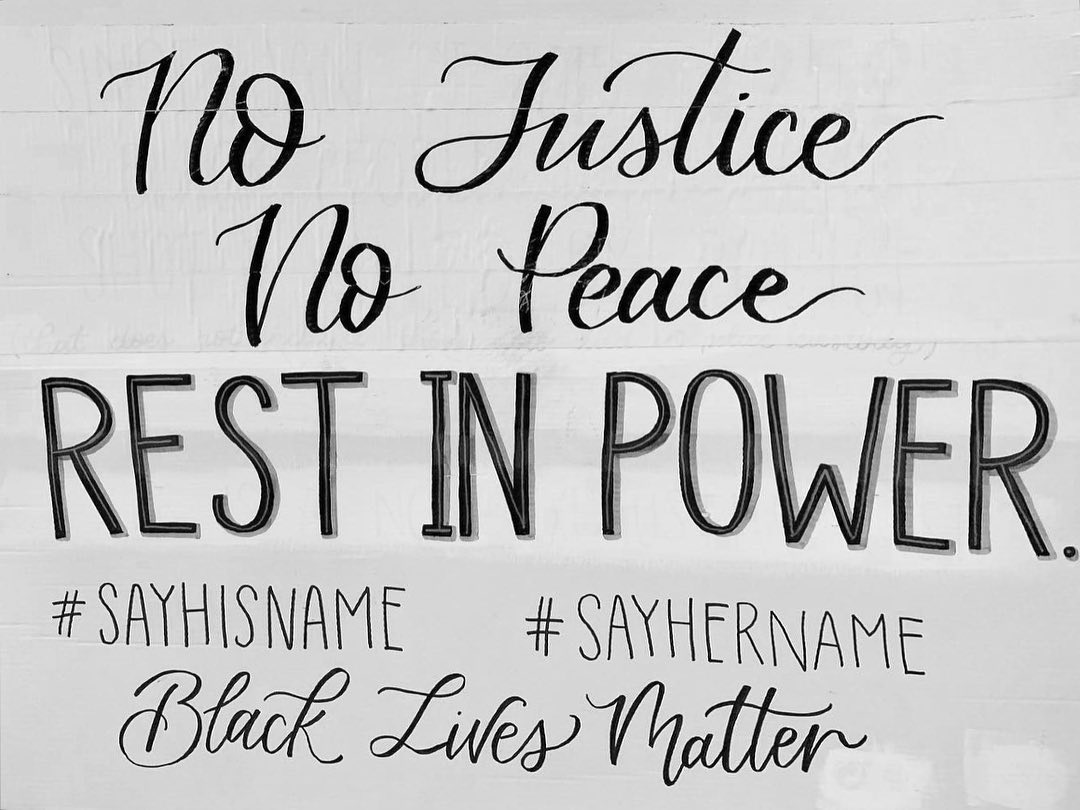 No Justice
No Peace
REST IN POWER.
#SAYHISNAME #SAYHERNAME
Black Lives Matter